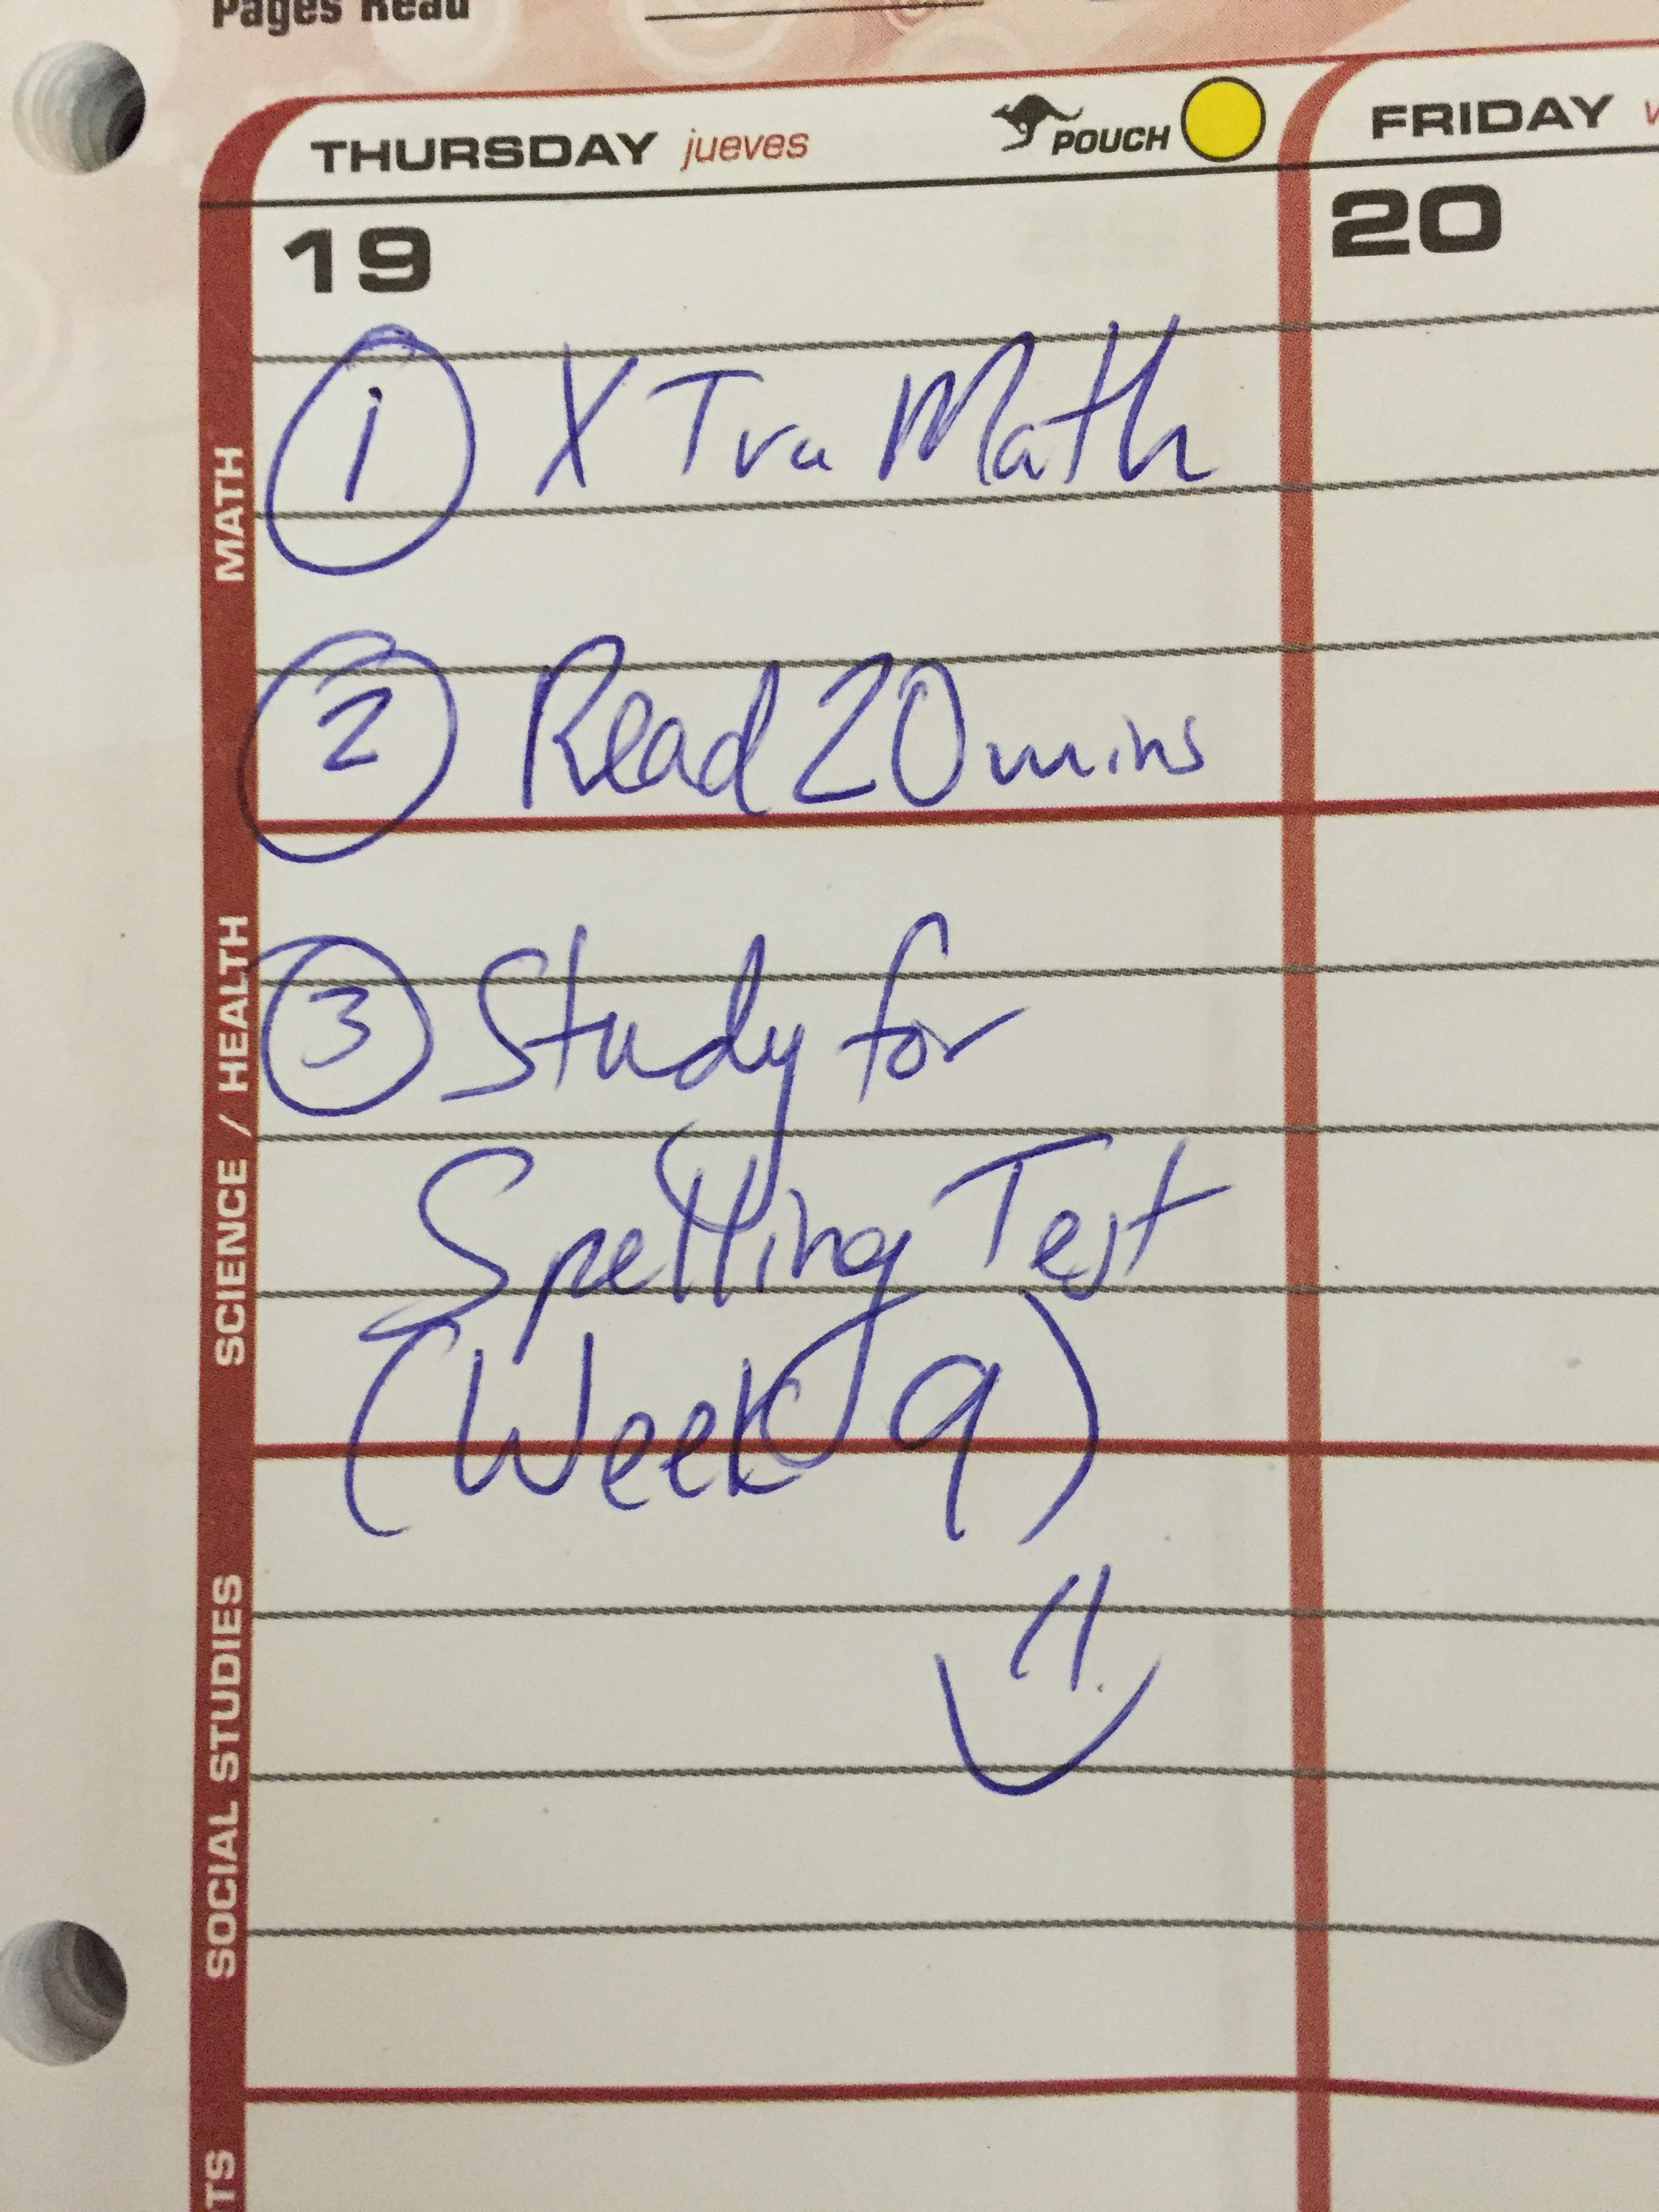 Pages Read
THURSDAY jueves POUCH
FRIDAY
19
20
1 X Tra Math
2 Read 20 mins
3 Study for
Spelling Test
(Week 9)
MATH
SCIENCE / HEALTH
SOCIAL STUDIES